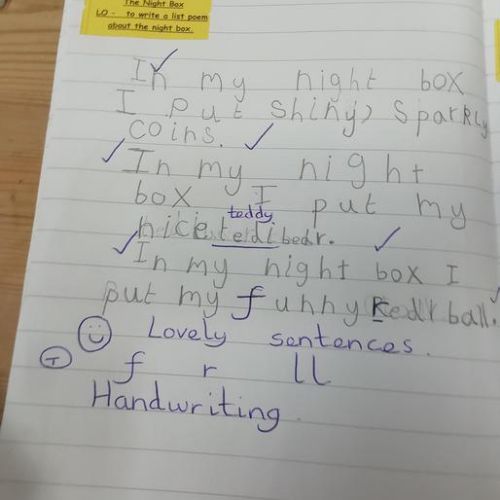 The Night Box
LO - to write a list poem
about the night box.
In my night box
I put shiny, sparkly
coins.
In my night
box I put my
teddy
nice tedi bedr.
In my night box I
put my funny red ball.
Lovely sentences.
T f r ll
Handwriting